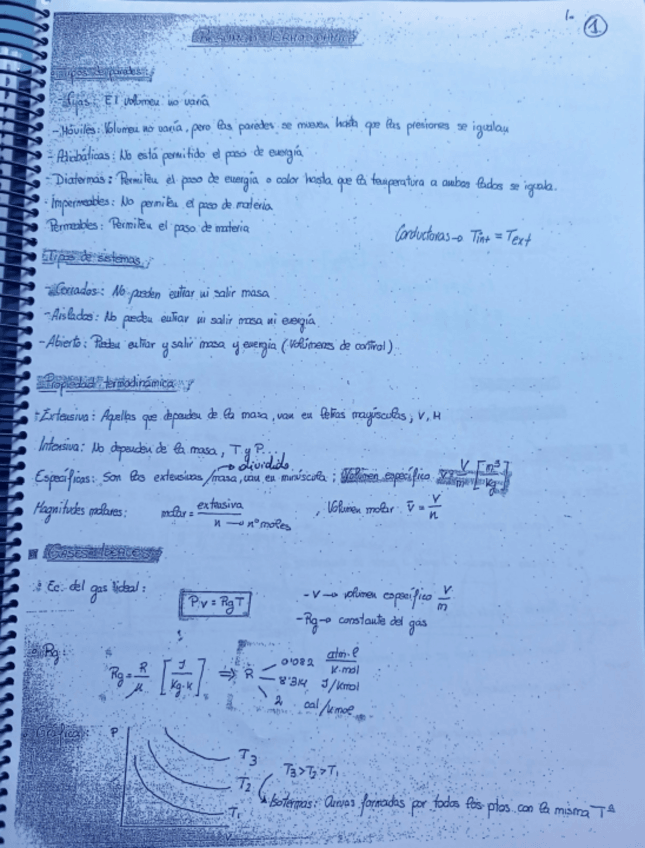 1.
1
Tipos de paredes:
- Fijas: El volumen no varía
- Móviles: Volumen no varía, pero las paredes se mueven hasta que las presiones se igualan
- Adiabáticas: No está permitido el paso de energía
- Diatermas: Permiten el paso de energía o calor hasta que la temperatura a ambos lados se iguala.
- Impermeables: No permiten el paso de materia.
Permeables: Permiten el paso de materia
Conductoras → Tint = Text
Tipos de sistemas:
- Cerrados: No pueden entrar ni salir masa
- Aislados: No pueden entrar ni salir masa ni energía
- Abierto: Pueden entrar y salir masa y energía (Volúmenes de control)
Propiedad termodinámica:
- Extensiva: Aquellas que dependen de la masa, van en letras mayúsculas, V, H
Intensiva: No dependen de la masa, T y P.
→ dividido
Específicas: Son las extensivas / masa, van en minúscula; Volumen específico v = V/m [m³/kg]
Magnitudes molares: molar = extensiva/n → nº moles, Volumen molar v̄ = V/n
Gases ideales
Ec. del gas ideal: P·v = RgT
- v → volumen específico V/m
- Rg → constante del gas
Rg:
Rg = R/μ [J/kg·K] ⇒ R
0'082 atm·l/K·mol
8'314 J/Kmol
2 cal/Kmol
Gráfica: P
T3
T2
T1
T3 > T2 > T1
Isotermas: Curvas formadas por todos los ptos con la misma Tª